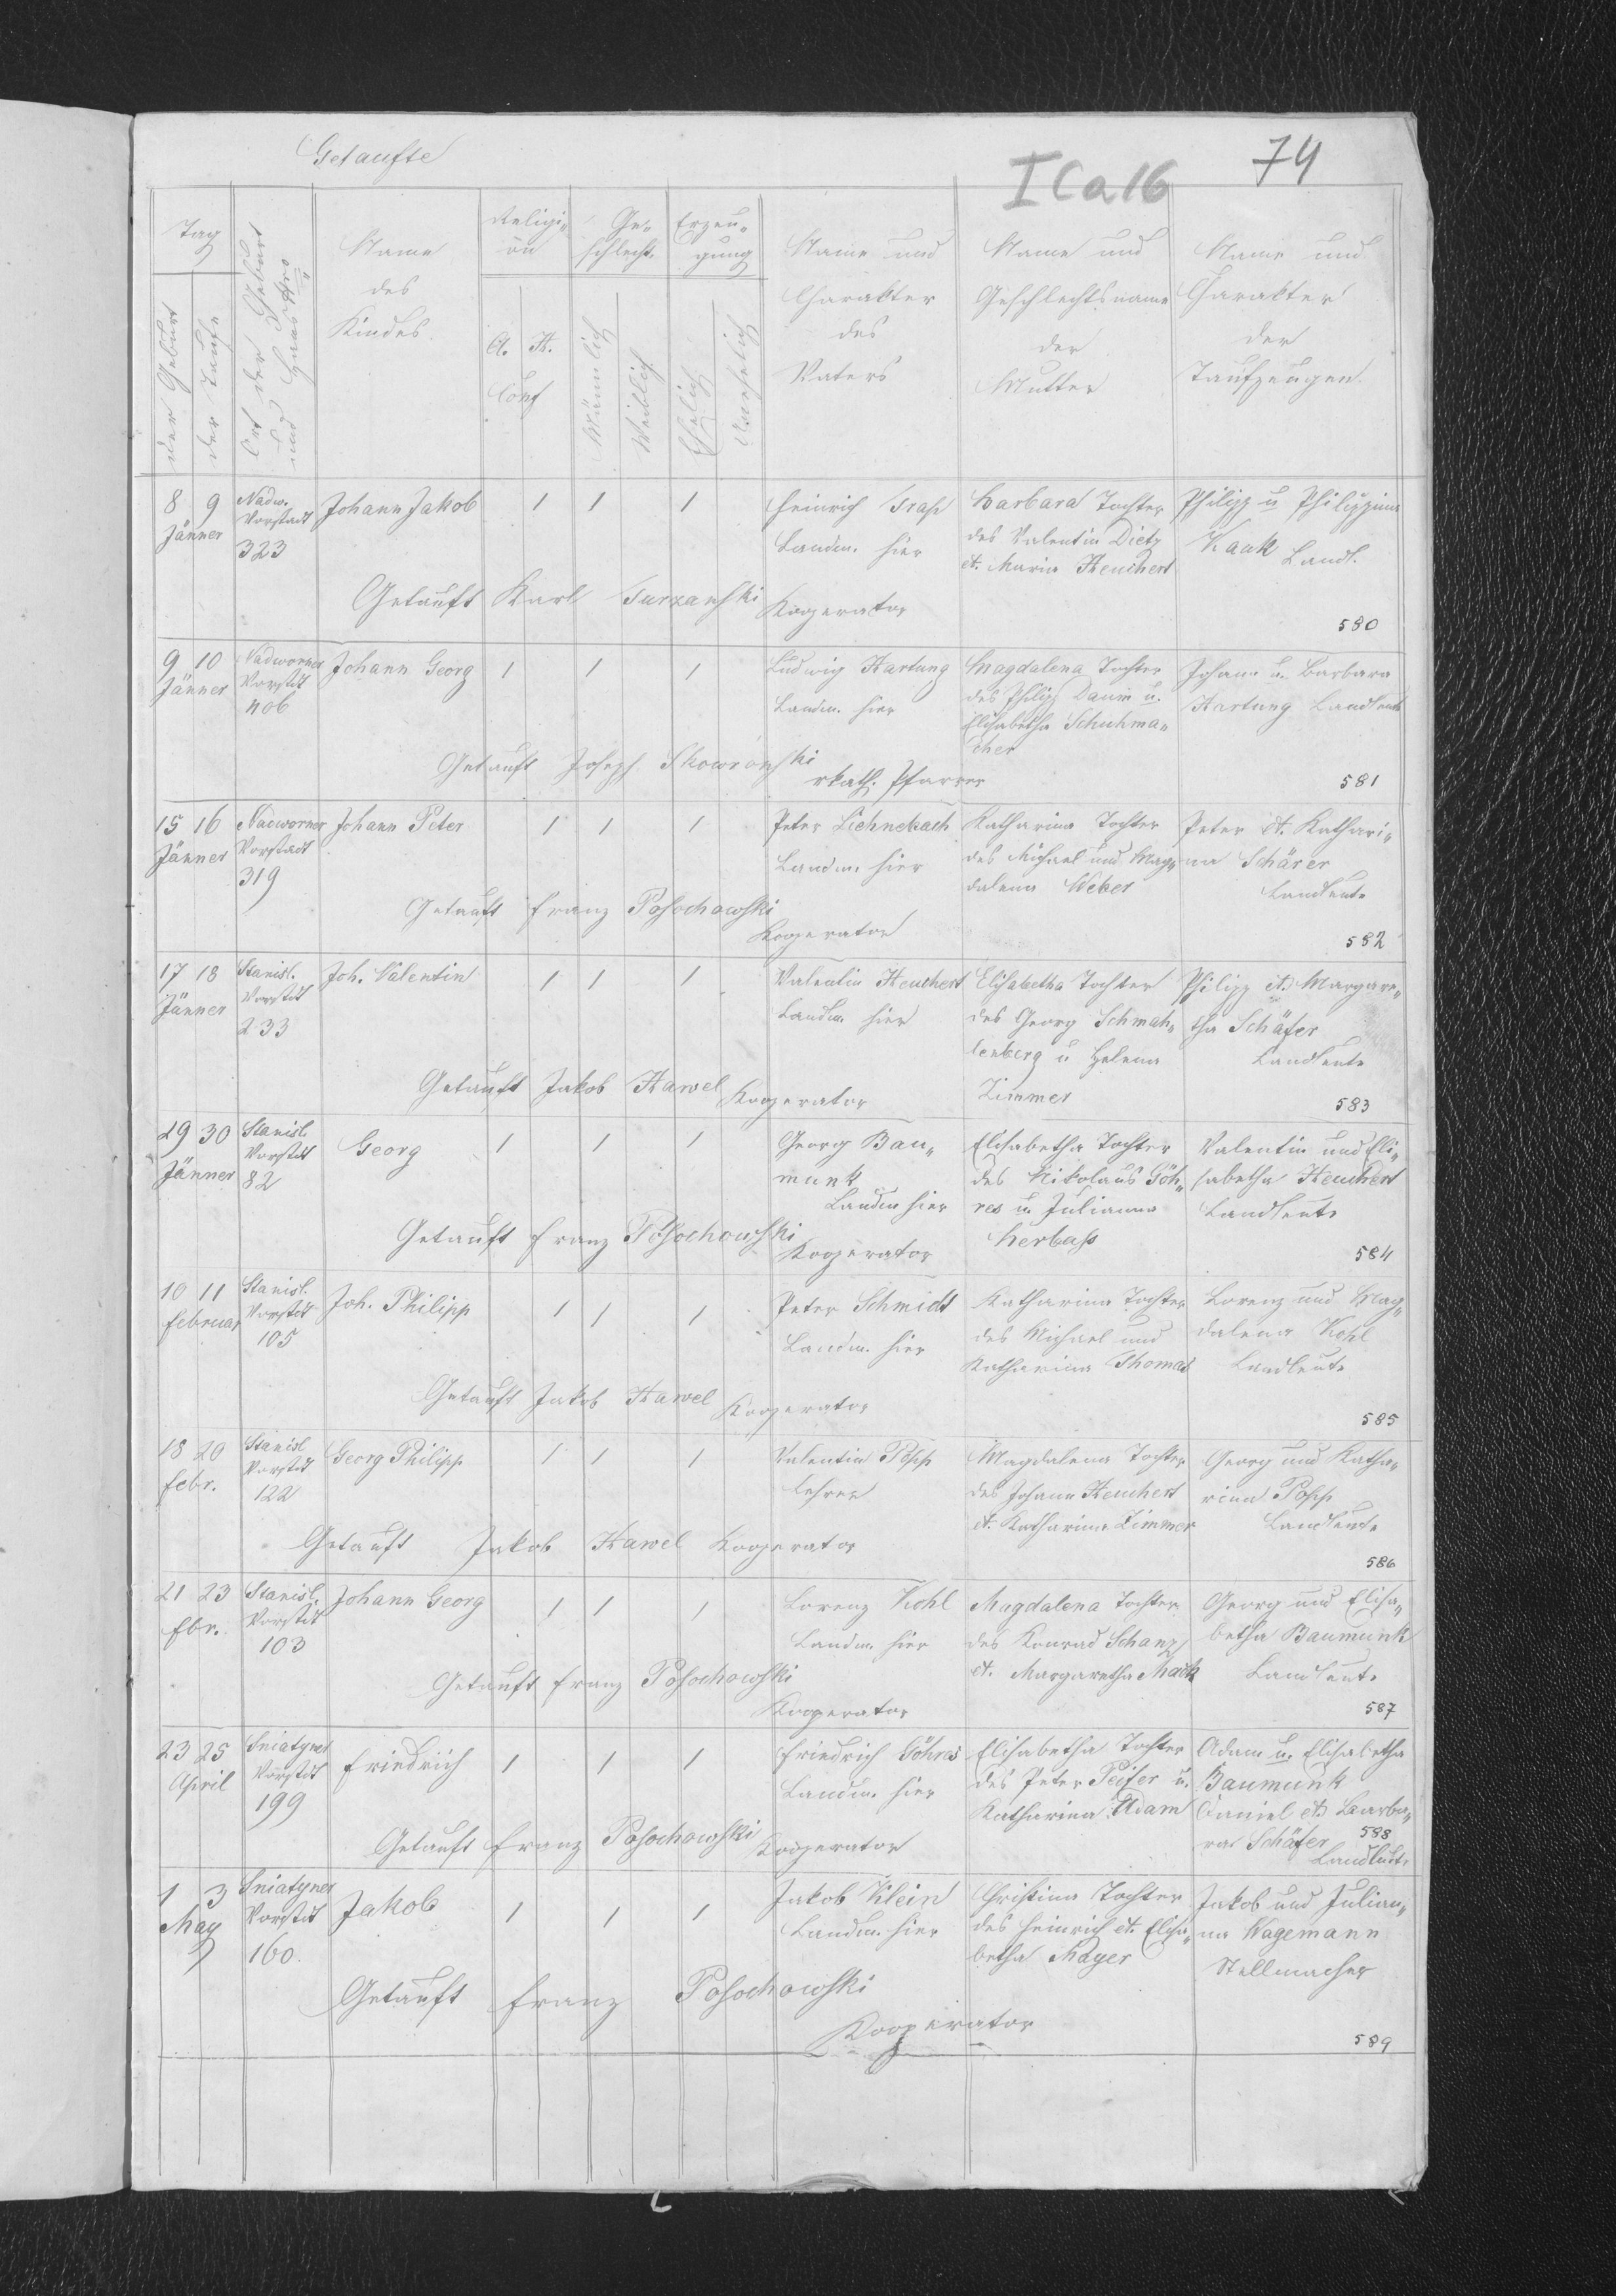 Getaufte
I C a 16
74
Tag
der Geburt
der Taufe
Ort der Geburt
und Haus Nro
Name
des
Kindes.
Religi-
on
A. H.
Conf
Ge-
schlecht.
Männlich
Weiblich
Erzeu-
gung
Ehelich
Unehelich
Name und
Charakter
des
Vaters
Name und
Geschlechtsname
der
Mutter
Name und
Charakter
der
Taufzeugen.
8 9
Jänner
Nadw.
Vorstadt
323
Johann Jakob
1 1 1
Heinrich Trap
Landm. hier
Barbara Tochter
des Valentin Dietz
et. Maria Heuchert
Philipp u Philippina
Kauk Landl.
Getauft Karl Turzanski Kooperator
580
9 10
Jänner
Nadworner
Vorstdt
406
Johann Georg
1 1 1
Ludwig Hartung
Landm. hier
Magdalena Tochter
des Philipp Daum u.
Elisabetha Schuhma-
cher
Johann u. Barbara
Hartung Landleute
Getauft Joseph Skowroński
rkath. Pfarrer
581
15 16
Jänner
Nadworner
Vorstadt
319
Johann Peter
1 1 1
Peter Liehnebach
Landm. hier
Katharina Tochter
des Michael und Mag-
dalena Weber
Peter et. Kathari-
na Schärer
Landleute
Getauft Franz Posochowski
Kooperator
582
17 18
Jänner
Stanisl.
Vorstdt
233
Joh. Valentin
1 1 1
Valentin Heuchert
Landm. hier
Elisabetha Tochter
des Georg Schmah-
lenberg u Helena
Zimmer
Philipp et. Margare-
tha Schäfer
Landleute
Getauft Jakob Hawel Kooperator
583
29 30
Jänner
Stanisl.
Vorstdt
82
Georg
1 1 1
Georg Bau-
munk
Landm hier
Elisabetha Tochter
des Nikolaus Göh-
res u. Julianna
Herbass
Valentin und Eli-
sabetha Heuchert
Landleute
Getauft Franz Posochowski
Kooperator
584
10 11
Februar
Stanisl.
Vorstdt
105
Joh. Philipp
1 1 1
Peter Schmidt
Landm. hier
Katharina Tochter
des Michael und
Katharina Thomas
Lorenz und Mag-
dalena Kohl
Landleute
Getauft Jakob Hawel Kooperator
585
18 20
Febr.
Stanisl
Vorstdt
122
Georg Philipp
1 1 1
Valentin Popp
Lehrer
Magdalena Tochter
des Johann Heuchert
et. Katharina Zimmer
Georg und Katha-
rina Popp
Landleute
Getauft Jakob Hawel Kooperator
586
21 23
Fbr.
Stanisl.
Vorstdt
103
Johann Georg
1 1 1
Lorenz Kohl
Landm. hier
Magdalena Tochter
des Konrad Schanz
et. Margaretha Mack
Georg und Elisa-
betha Baumunk
Landleute
Getauft Franz Posochowski
Kooperator
587
23 25
April
Sniatyner
Vorstdt
199
Friedrich
1 1 1
Friedrich Göhres
Landm. hier
Elisabetha Tochter
des Peter Peifer u.
Katharina Adam
Adam u. Elisabetha
Baumunk
Daniel et. Barba-
ra Schäfer
Landleute
Getauft Franz Posochowski Kooperator
588
1 3
May
Sniatyner
Vorstdt
160.
Jakob
1 1 1
Jakob Klein
Landm. hier
Christina Tochter
des Heinrich et. Elisa-
betha Mayer
Jakob und Julian-
na Wagemann
Stellmacher
Getauft Franz Posochowski
Kooperator
589